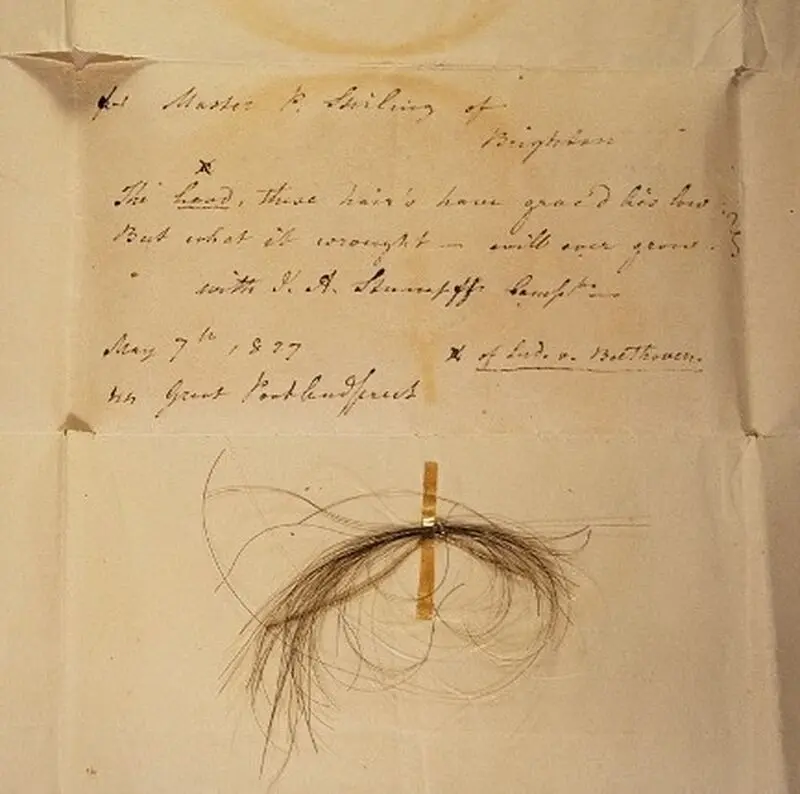 for Master P. Stirling of
Brighton
x
The head, these hair's have grac'd lies low
But what it wrought – will ever grow.
with J. A. Stumpff's Compts
May 7th 1827 x of Lud. v. Beethoven.
Great Portlandstreet